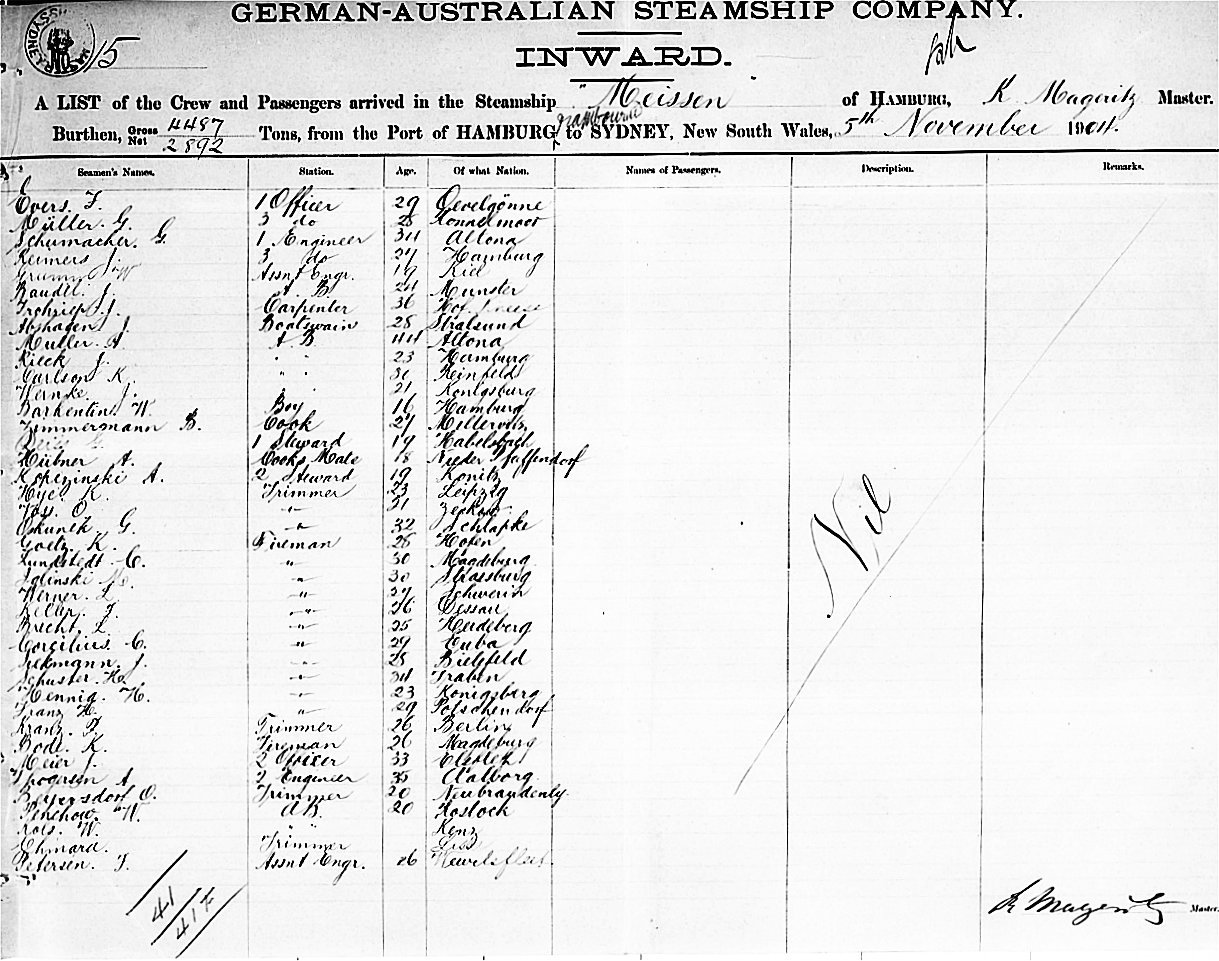 GERMAN-AUSTRALIAN STEAMSHIP COMPANY.
15
INWARD.
A LIST of the Crew and Passengers arrived in the Steamship "Meissen" of HAMBURG, K Mageritz Master.
Burthen, Gross 4487 Net 2892 Tons, from the Port of HAMBURG to SYDNEY, New South Wales, 5th November 1904.
Seamen's Names. Station. Age. Of what Nation. Names of Passengers. Description. Remarks.
Evers. F. 1 Officer 29 Oevelgönne
Müller. G. 3 do 28
Schumacher. G. 1 Engineer 34 Altona
Reimers J. 3 do 27 Hamburg
W Assnt Engr. 19 Kiel
Baudel. J. A B 24 Munster
J. Carpenter 36 Hof
Abshagen J. Boatswain 28 Stralsund
Muller. A. A B 44 Altona
Rieck J. " " 23 Hamburg
Carlson K. " " Reinfeld
Wernke. J. " 21 Konigsburg
Barkentin. W. Boy 16 Hamburg
Zimmermann B. Cook 27
1 Steward 19 Habelsbach
Hübner A. Cooks Mate 18 Nieder Pfaffendorf
Kopczinski A. 2 Steward 19 Konitz
Hye. K. Trimmer 23 Leipzig
Voss. O. " 21
Skunek G. " 32 Schlapke
Goetz K. Fireman 28
Lundstedt C. " 30 Magdeburg
Iglinski " 30 Strassburg
Werner. L. " 37 Schwerin
Keller. F. " 26 Dessau
Brecht. L. " 25
Corcilius. C. " 29 Cuba
J. " 28 Bielefeld
Schuster. H. " 34 Traben
Hennig. H. " 23 Konigsberg
Franz H. " 29
Kranz. F. Trimmer 26 Berlin
Bode. K. Fireman 26 Magdeburg
Meier J. 2 Officer 33 Elsfleth
Thogersen A. 2 Engineer 35 Aalborg
Beyersdorf O. Trimmer 20
W. A.B. 20 Rostock
W. " Kenz
Ehmard. Trimmer
Petersen. F. Assnt Engr. 26
Nil
41
K Mageritz Master.